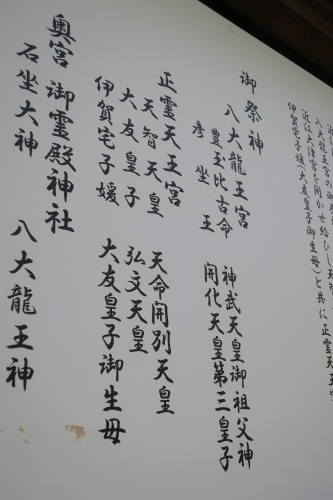 八大龍王宮
近江大津宮を開かせ給ひし
伊賀宅子媛(大友皇子御生母)と共に正霊天王宮
御祭神
八大龍王宮
豊玉比古命 神武天皇御祖父神
彦坐王 開化天皇第三皇子
正霊天王宮
天智天皇 天命開別天皇
大友皇子 弘文天皇
伊賀宅子媛 大友皇子御生母
奥宮 御霊殿神社
石坐大神 八大龍王神